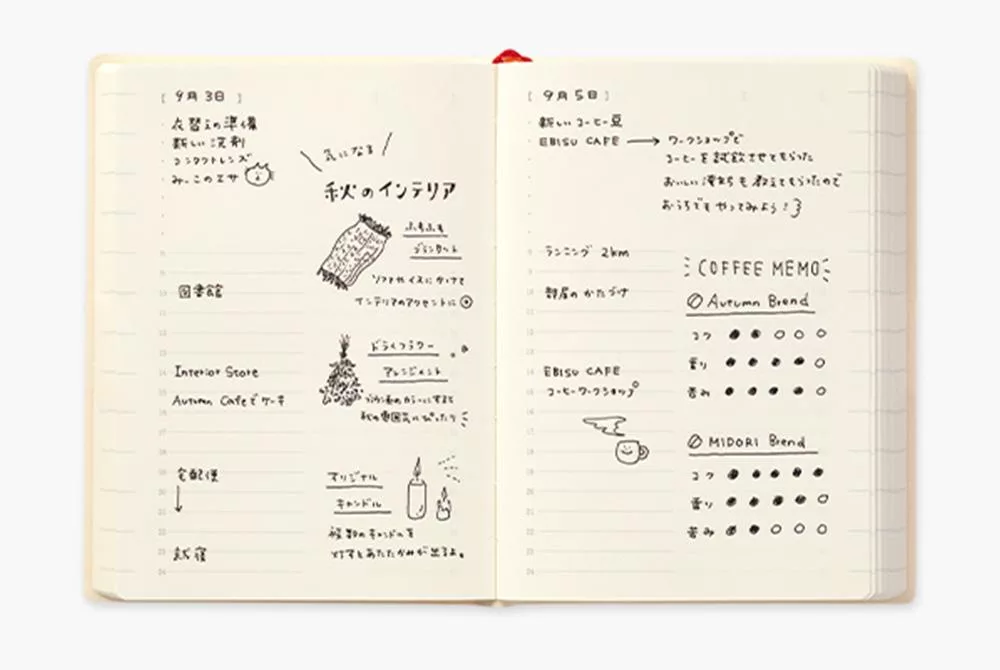 [ 9月3日 ]
・衣替えの準備
・新しい洗剤
・コンタクトレンズ
・みーこのエサ
図書館
Interior Store
Autumn Cafeでケーキ
宅配便
気になる
秋のインテリア
ふわふわ
ブランケット
ソファやイスにかけて
インテリアのアクセントに
ドライフラワー
アレンジメント
秋の雰囲気にぴったり
オリジナル
キャンドル
複数のキャンドルを
灯すとあたたかみが出るよ。
[ 9月5日 ]
・新しいコーヒー豆
・EBISU CAFE → ワークショップで
コーヒーを試飲させてもらった
おいしい淹れ方も教えてもらったので
おうちでもやってみよう!
ランニング 2km
部屋のかたづけ
EBISU CAFE
コーヒーワークショップ
COFFEE MEMO
Autumn Brend
コク
香り
苦み
MIDORI Brend
コク
香り
苦み